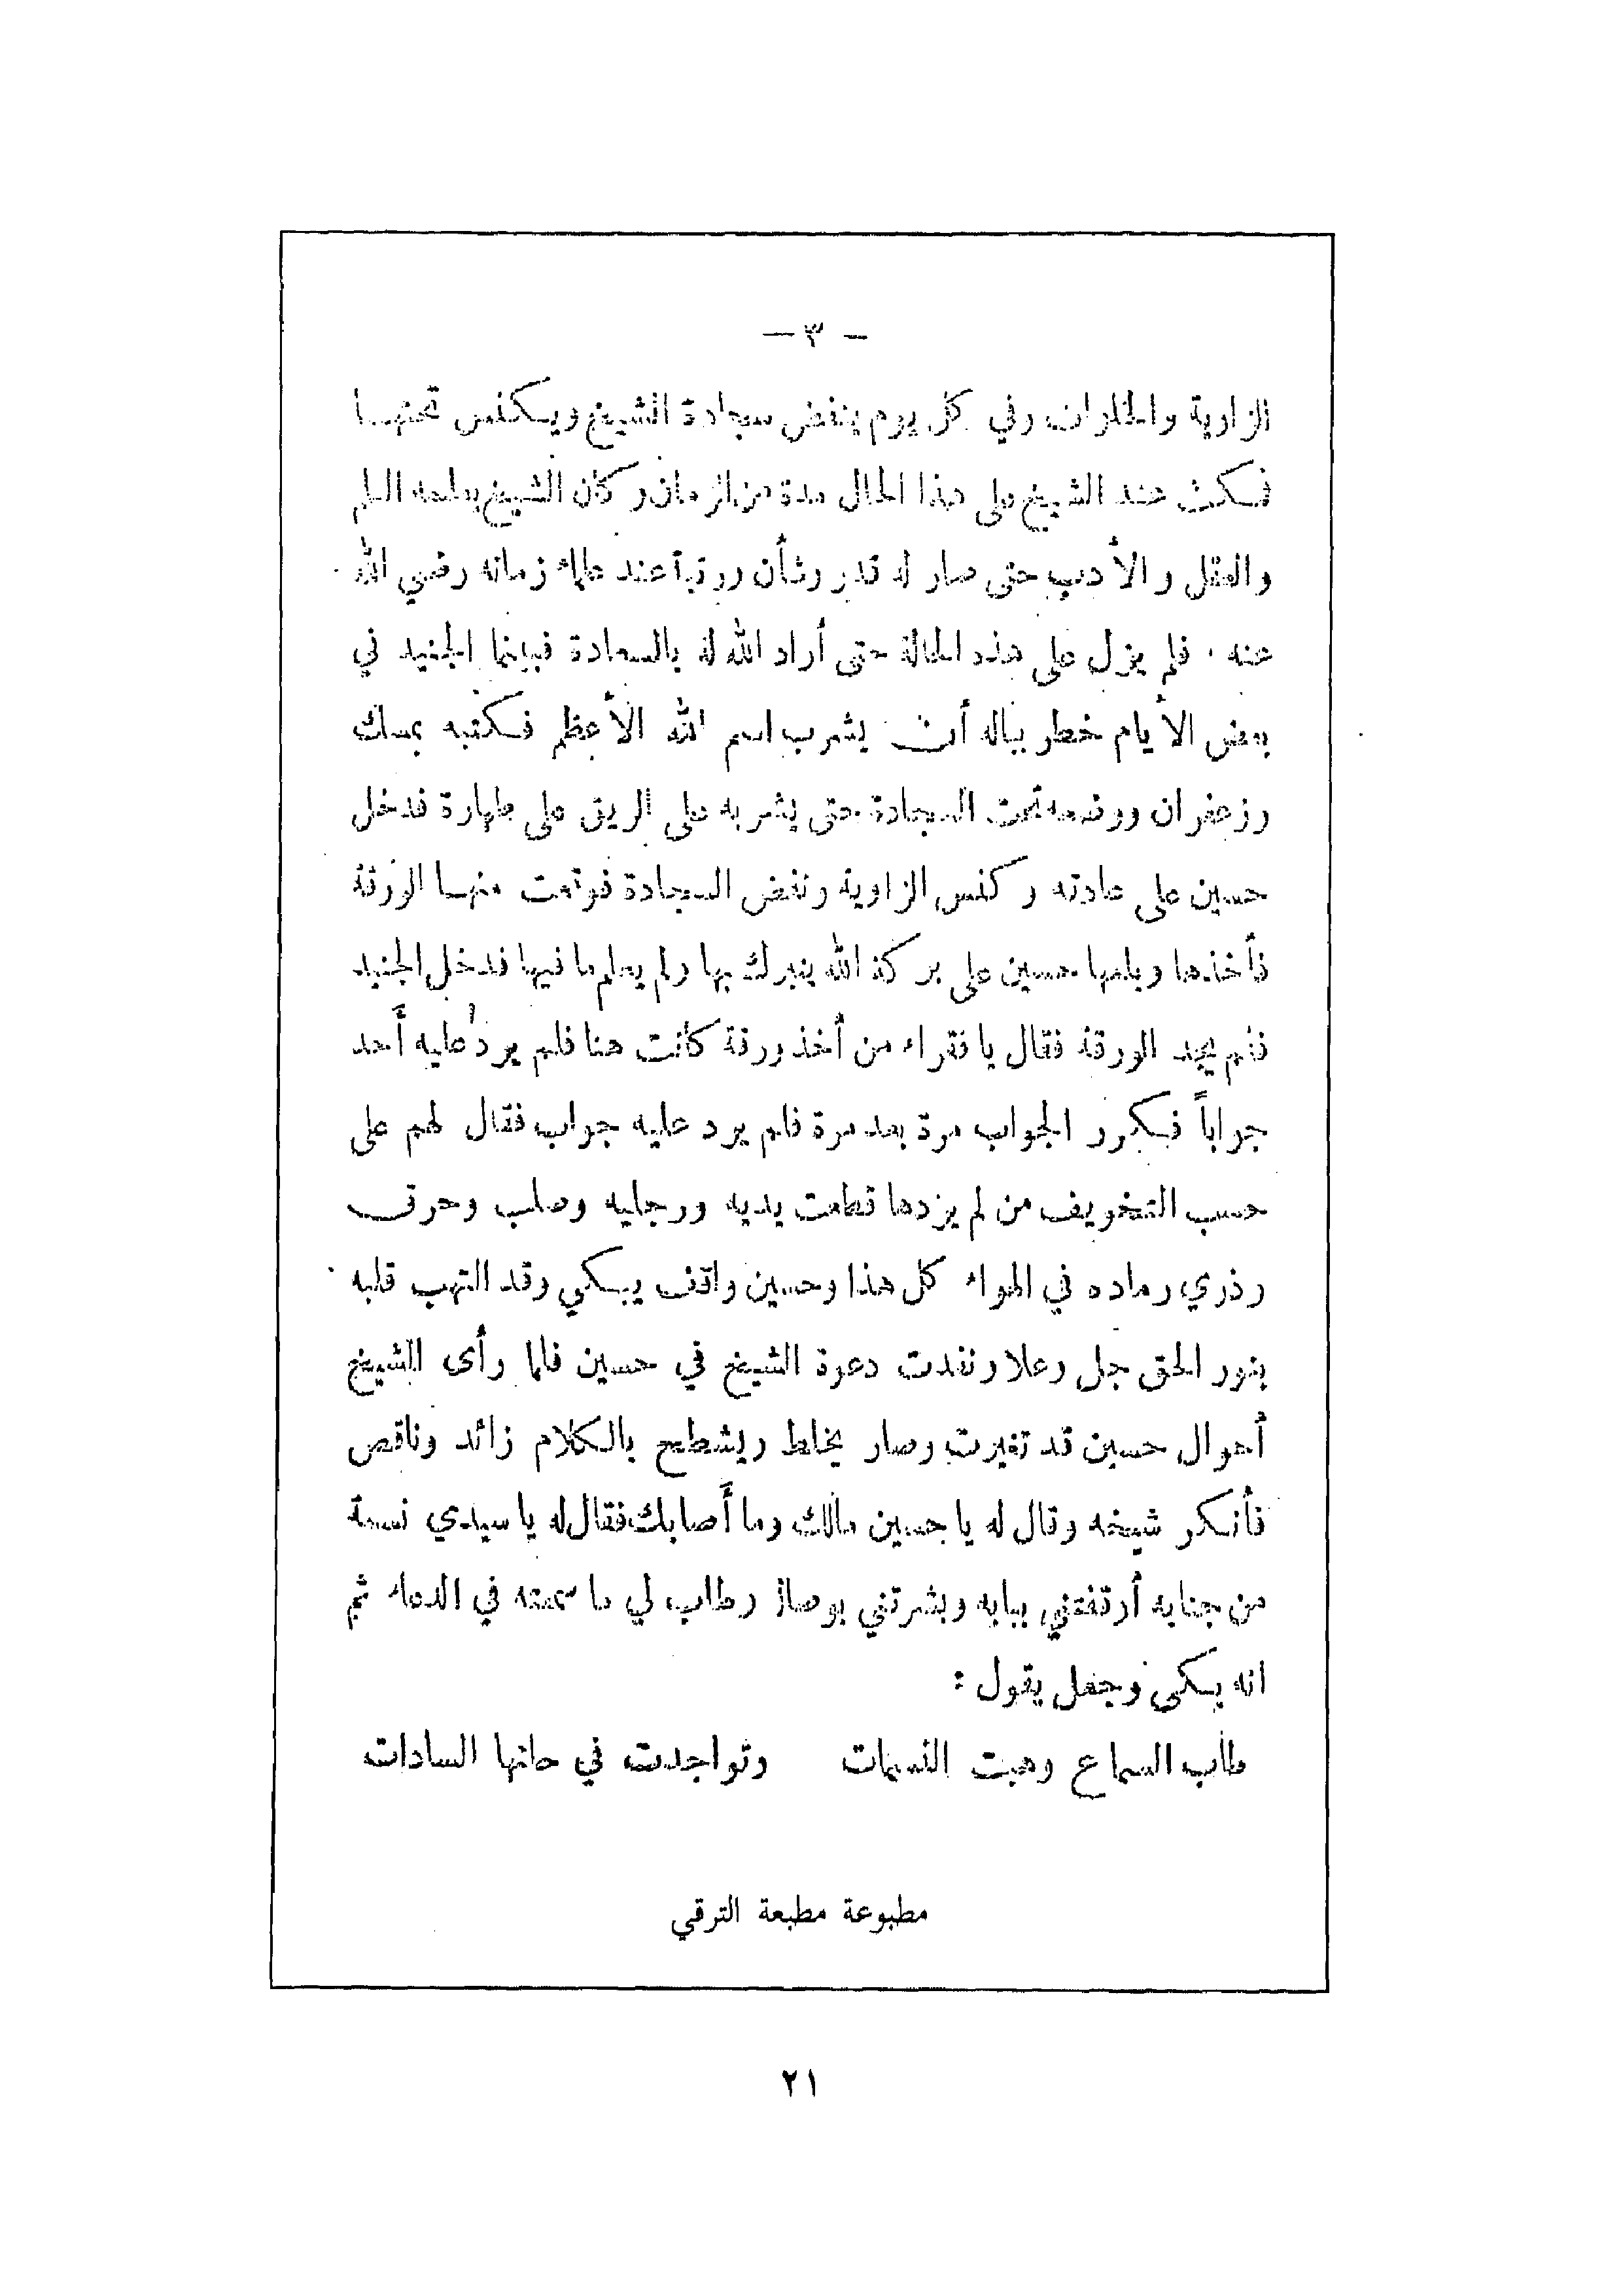 — ٣ —
الزاوية والخلوات وفي كل يوم ينفض سجادة الشيخ ويكنس تحتها
فمكث عند الشيخ على هذا الحال مدة من الزمان وكان الشيخ يعلمه العلم
والعقل والأدب حتى صار له قدر وشأن ورتبة عند علماء زمانه رضي الله
عنه . فلم يزل على هذه الحالة حتى أراد الله له بالسعادة فبينما الجنيد في
بعض الأيام خطر بباله أن يشرب اسم الله الأعظم فكتبه بمسك
وزعفران ووضعه تحت السجادة حتى يشربه على الريق على طهارة فدخل
حسين على عادته وكنس الزاوية ونفض السجادة فوقعت منها الورقة
فأخذها وبلعها حسين على بركة الله يتبرك بها ولم يعلم ما فيها فدخل الجنيد
فلم يجد الورقة فقال يا فقراء من أخذ ورقة كانت هنا فلم يرد عليه أحد
جواباً فكرر الجواب مرة بعد مرة فلم يرد عليه جواب فقال لهم على
حسب التخويف من لم يردها قطعت يديه ورجليه وصلب وحرق
وذري رماده في الهواء كل هذا وحسين واقف يبكي وقد التهب قلبه
بنور الحق جل وعلا ونفدت دعوة الشيخ في حسين فلما رأى الشيخ
أحوال حسين قد تغيرت وصار يخلط ويشطح بالكلام زائد وناقص
فأنكر شيخه وقال له يا حسين مالك وما أصابك فقال له يا سيدي نسمة
من جنابه أوقفتني ببابه وبشرتني بوصاله وطاب لي ما سمعته في الدعاء ثم
انه بكى وجعل يقول :
طاب السماع وهبت النسمات وتواجدت في حانها السادات
مطبوعة مطبعة الترقي
٢١